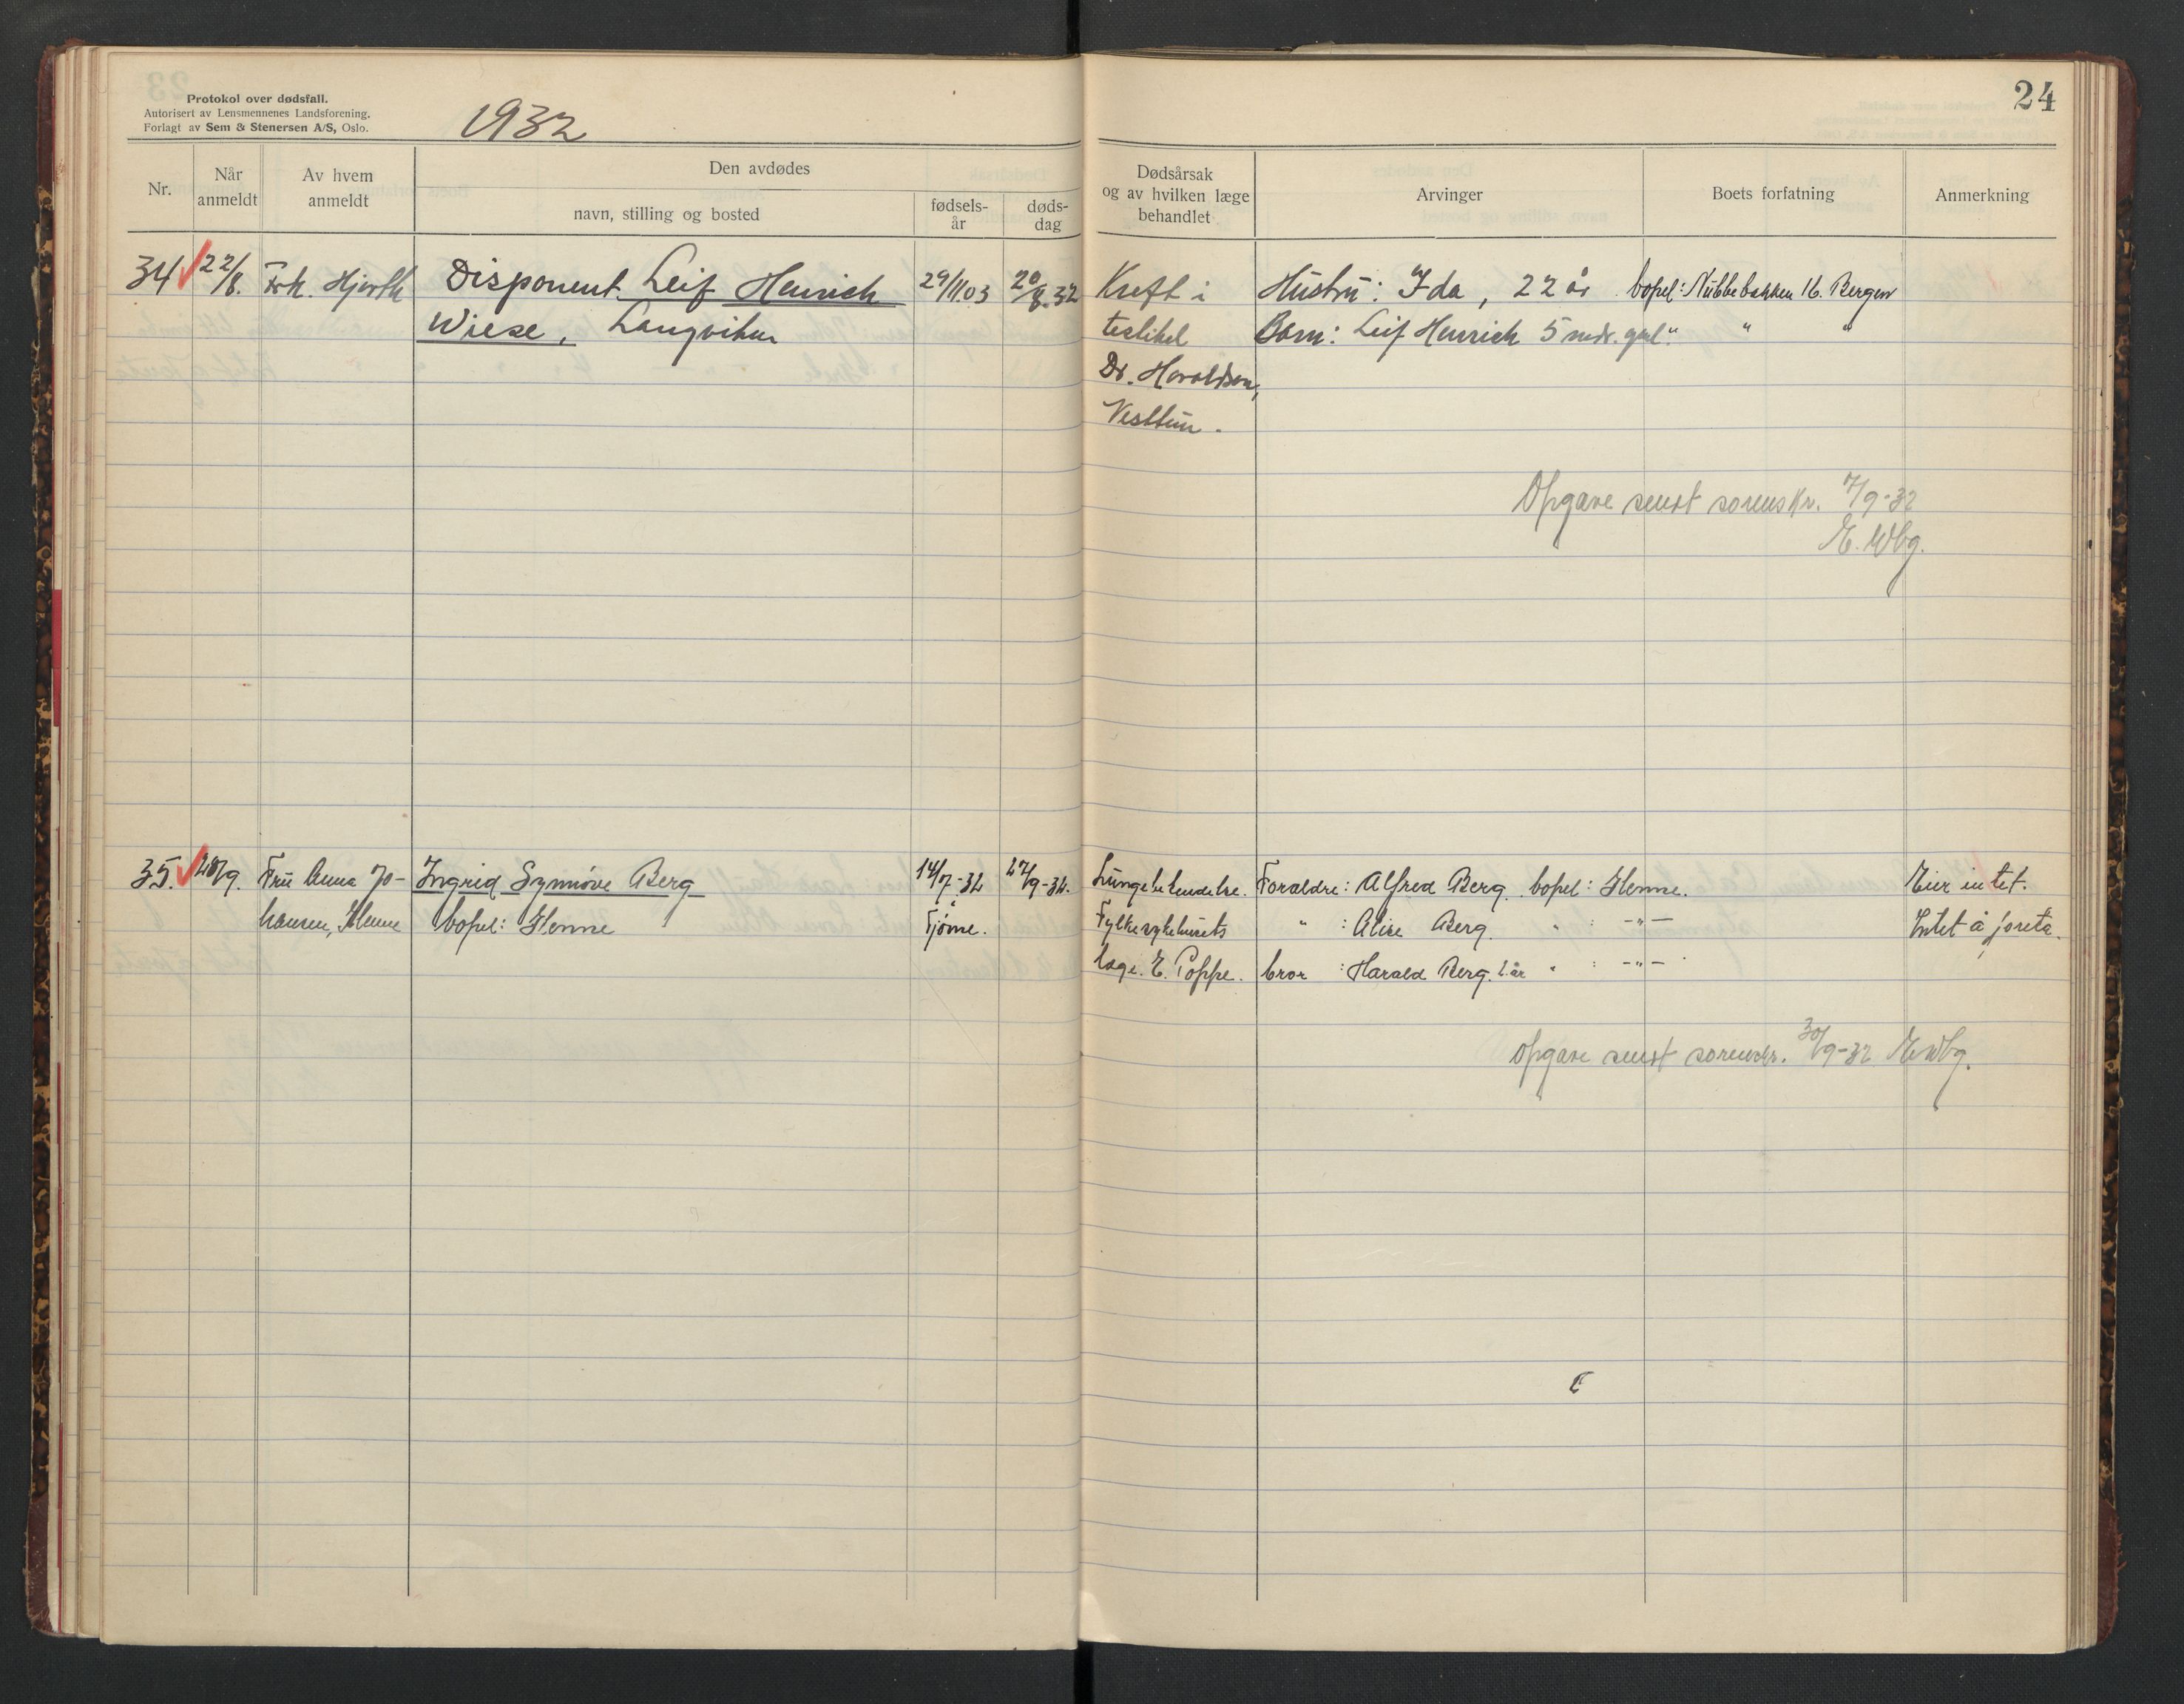 Protokol over dødsfall.
Autorisert av Lensmennenes Landsforening.
Forlagt av Sem & Stenersen A/S, Oslo.
1932
24
Nr.
Når anmeldt
Av hvem anmeldt
Den avdødes
navn, stilling og bosted
fødsels-år
døds-dag
Dødsårsak
og av hvilken læge
behandlet
Arvinger
Boets forfatning
Anmerkning
34 22/8. Frk. Hjorth Disponent Leif Henrich 29/11.03 20/8.32 Kreft i Hustru: Ida, 22 år bopel: Nubbebakken 16. Bergen
Wiese, Langviken testikel Barn: Leif Henrich 5 mdr. gml " " "
Dr. Haraldsen,
Nesttun.
Opgave sendt sorenskr. 7/9-32
E. Wbg.
35. 28/9. Fru Anna Jo- Ingrid Synnøve Berg 14/7-32 27/9-32. Lungebetendelse. Foraldre: Alfred Berg. bopel: Henne. Eier intet.
hansen, Henne bopel: Henne Fjørne. Fylkesykehusets " : Alise Berg. " : -"- Intet å foreta.
læge E. Poppe. bror : Harald Berg. 2 år " : -"-
Opgave sendt sorenskr. 30/9-32 E Wbg.